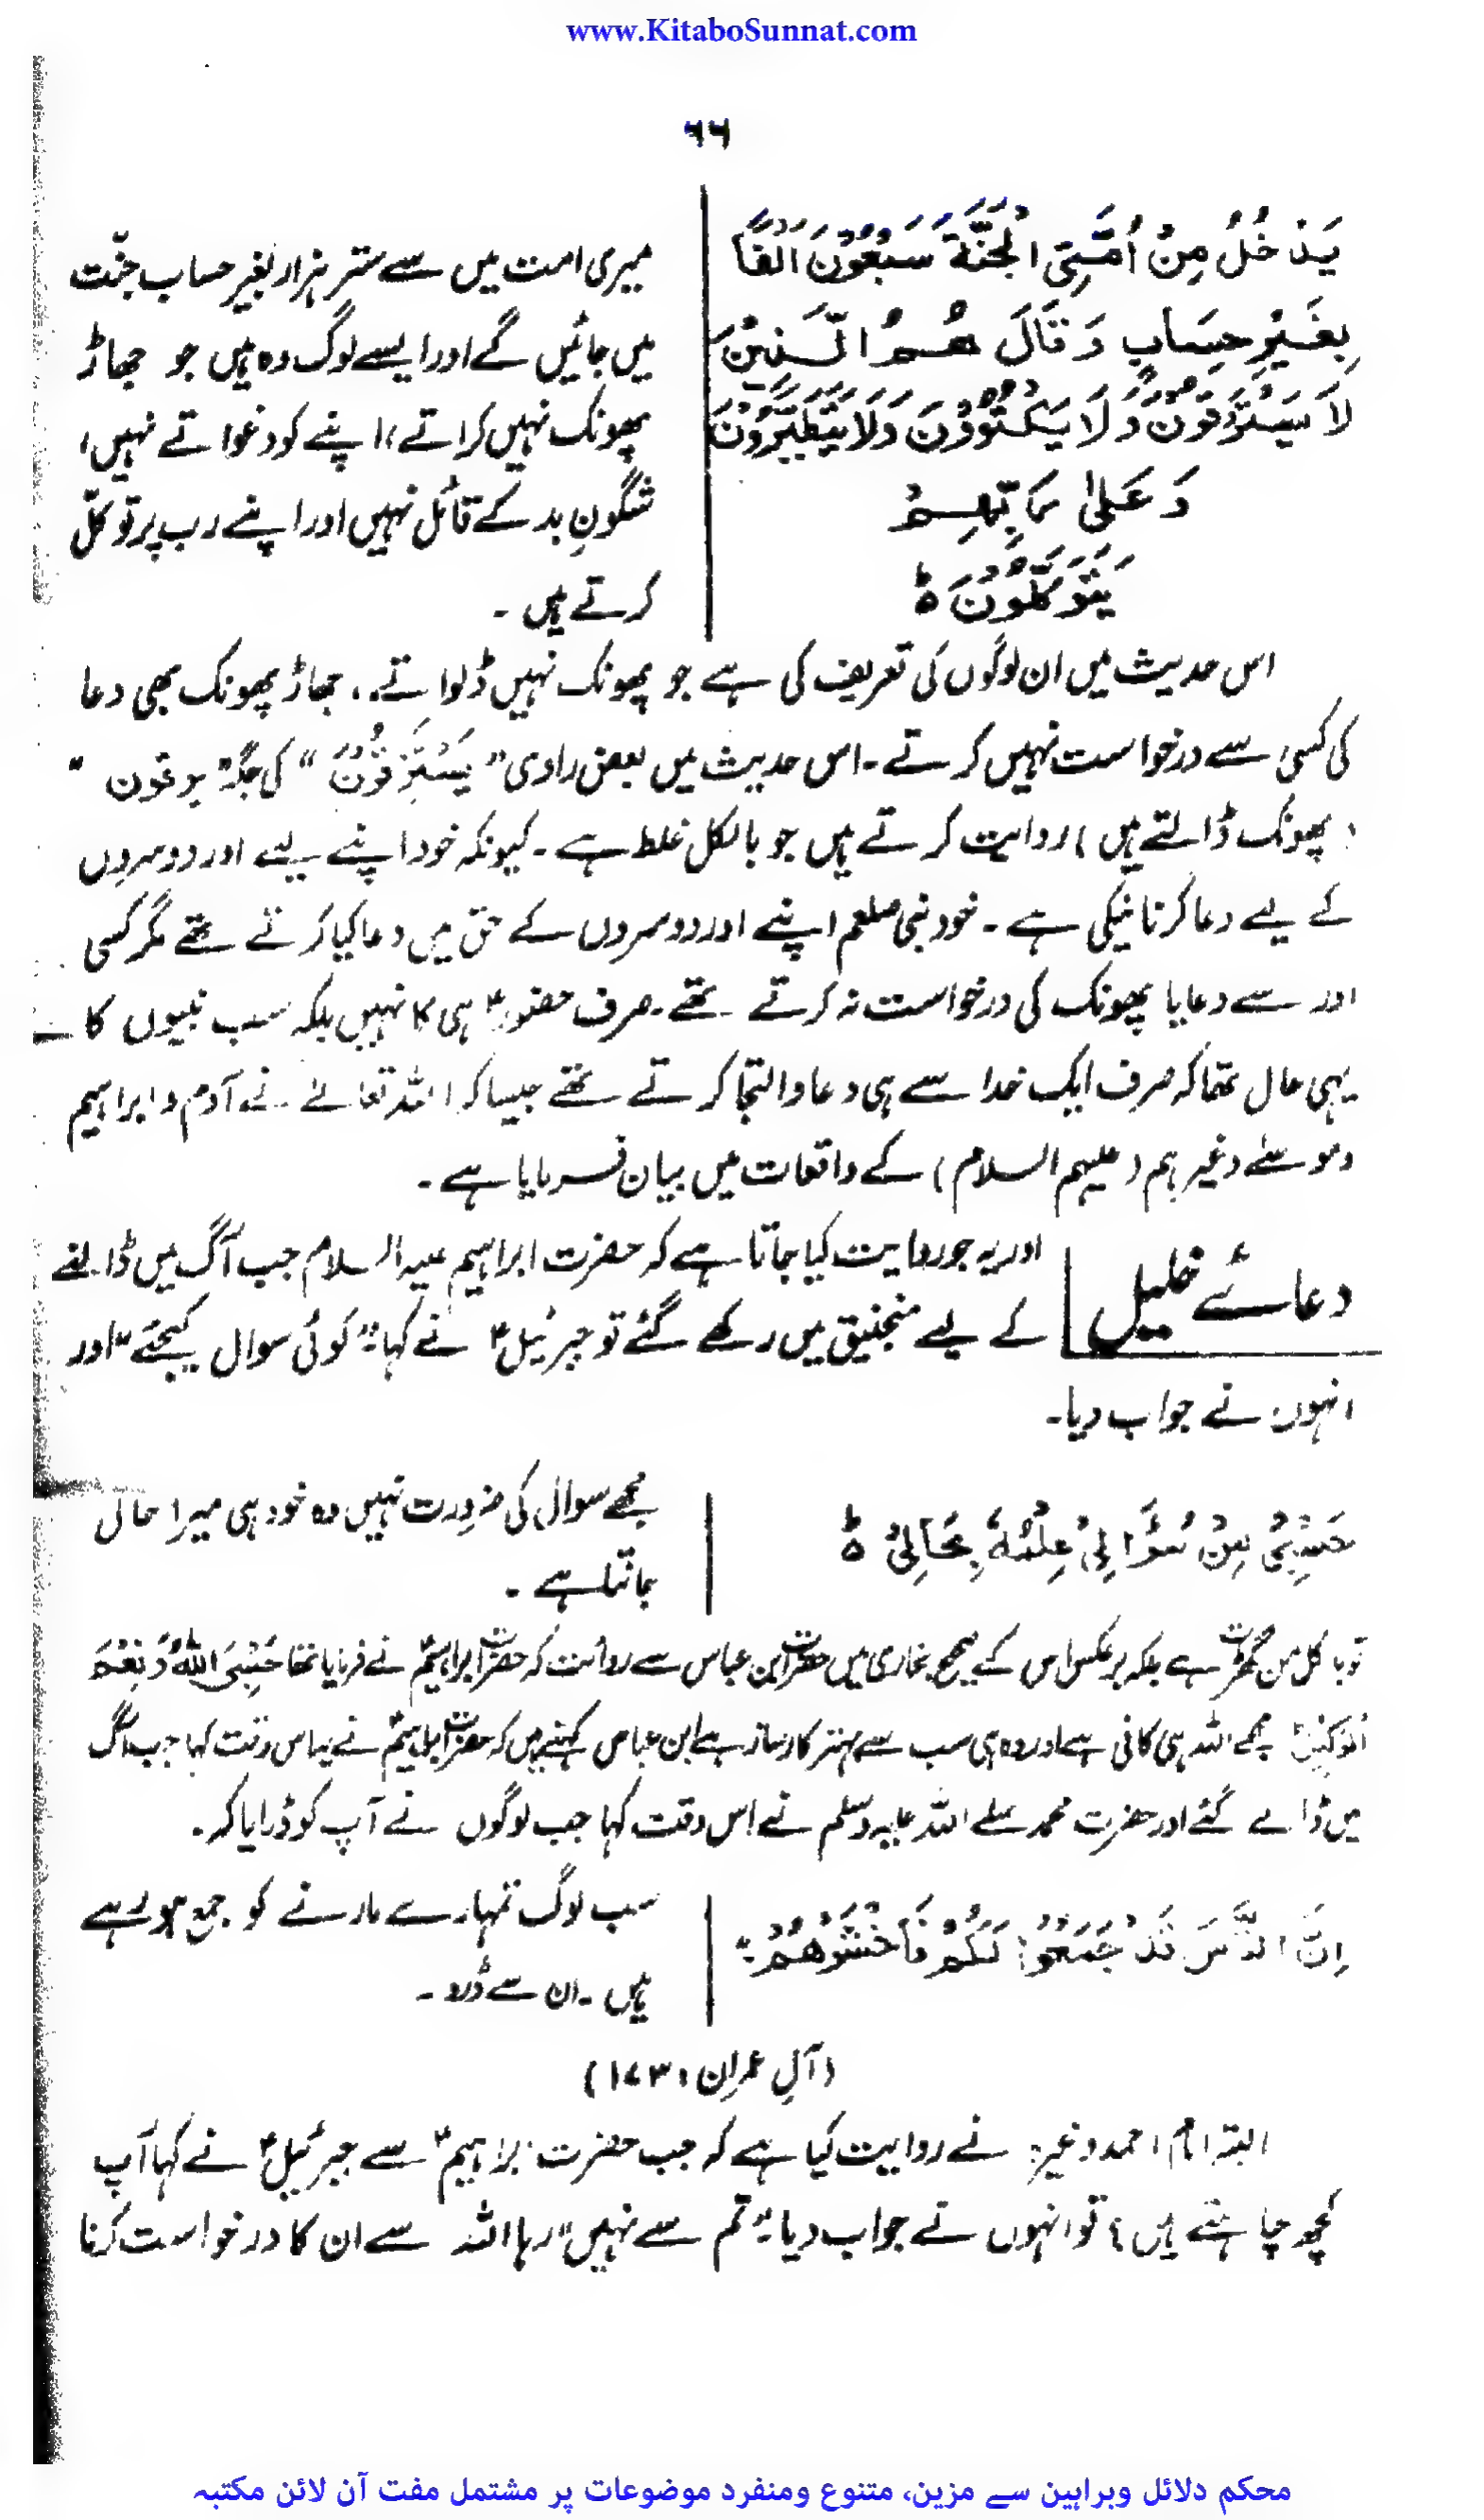 www.KitaboSunnat.com
٦٦
يَدْخُلُ مِنْ اُمَّتِى الْجَنَّةَ سَبْعُوْنَ اَلْفًا
بِغَيْرِ حِسَابٍ وَقَالَ هُمُ الَّذِيْنَ
لَا يَسْتَرْقُوْنَ وَلَا يَكْتَوُوْنَ وَلَا يَتَطَيَّرُوْنَ
وَعَلٰى رَبِّهِمْ
يَتَوَكَّلُوْنَ ط
میری امت میں سے ستر ہزار بغیر حساب جنّت
میں جائیں گے اور ایسے لوگ وہ ہیں جو جھاڑ
پھونک نہیں کراتے، اپنے کو دغواتے نہیں،
شگونِ بد کے قائل نہیں اور اپنے رب پر توکّل
کرتے ہیں ۔
اس حدیث میں ان لوگوں کی تعریف کی ہے جو پھونک نہیں ڈلواتے.، جھاڑ پھونک بھی دعا
کی کسی سے درخواست نہیں کرتے ۔ اس حدیث میں بعض راوی "يَسْتَرْقُوْنَ" کی جگہ "یرقون"
(پھونک ڈالتے ہیں) روایت کرتے ہیں جو بالکل غلط ہے ۔ کیونکہ خود اپنے لیے اور دوسروں
کے لیے دعا کرنا نیکی ہے ۔ خود نبی صلعم اپنے اور دوسروں کے حق میں دعا کیا کرتے تھے مگر کسی
اور سے دعا یا پھونک کی درخواست نہ کرتے تھے ۔ صرف حضورؐ ہی کا نہیں بلکہ سب نبیوں کا
یہی حال تھا کہ صرف ایک خدا سے ہی دعا و التجا کرتے تھے جیسا کہ اللہ تعالےٰ نے آدم و ابراہیم
و موسےٰ وغیرہم (علیہم السلام) کے واقعات میں بیان فرمایا ہے ۔
دعائے خلیل
اور یہ جو روایت کیا جاتا ہے کہ حضرت ابراہیم علیہ السلام جب آگ میں ڈالنے
کے لیے منجنیق میں رکھے گئے تو جبرئیلؑ نے کہا: "کوئی سوال کیجئے" اور
انہوں نے جواب دیا۔
حَسْبِىْ مِنْ سُؤَالِىْ عِلْمُهٗ بِحَالِىْ ط
مجھے سوال کی ضرورت نہیں وہ خود ہی میرا حال
جانتا ہے ۔
تو بالکل من گھڑت ہے بلکہ برعکس اس کے صحیح بخاری میں حضرت ابن عباس سے روائت کہ حضرت ابراہیمؑ نے فرمایا تھا حَسْبِىَ اللهُ وَنِعْمَ
الْوَكِيْلُ مجھے اللہ ہی کافی ہے اور وہ ہی سب سے بہتر کارساز ہے ابن عباس کہتے ہیں کہ حضرت ابراہیمؑ نے یہ اس وقت کہا جب آگ
میں ڈالے گئے اور حضرت محمد صلے اللہ علیہ وسلم نے اس وقت کہا جب لوگوں نے آپ کو ڈرایا کہ ۔
اِنَّ النَّاسَ قَدْ جَمَعُوْا لَكُمْ فَاخْشَوْهُمْ
سب لوگ تمہارے مارنے کو جمع ہو رہے
ہیں ۔ ان سے ڈرو ۔
(آلِ عمران ، ١٧٣)
البتہ امام احمد وغیرہ نے روایت کیا ہے کہ جب حضرت ابراہیمؑ سے جبرئیلؑ نے کہا آپ
کچھ چاہتے ہیں؟ تو انہوں نے جواب دیا "تم سے نہیں" رہا اللہ سے ان کا درخواست کرنا
محکم دلائل وبراہین سے مزین، متنوع ومنفرد موضوعات پر مشتمل مفت آن لائن مکتبہ